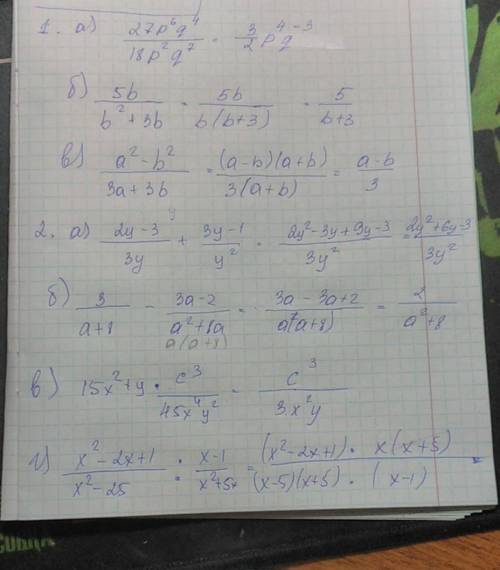 1. а) 27p⁶q⁴ / 18p²q⁷ = 3/2 p⁴q⁻³
б) 5b / b²+3b = 5b / b(b+3) = 5 / b+3
в) a²-b² / 3a+3b = (a-b)(a+b) / 3(a+b) = a-b / 3
2. а) 2y-3 / 3y + 3y-1 / y² = 2y²-3y+9y-3 / 3y² = 2y²+6y-3 / 3y²
б) 3 / a+8 - 3a-2 / a²+8a = 3a-3a+2 / a(a+8) = 2 / a²+8
a(a+8)
в) 15x²+y · c³ / 45x⁴y² = c³ / 3x²y
г) x²-2x+1 / x²-25 : x-1 / x²+5x = (x²-2x+1) · x(x+5) / (x-5)(x+5) · (x-1) =